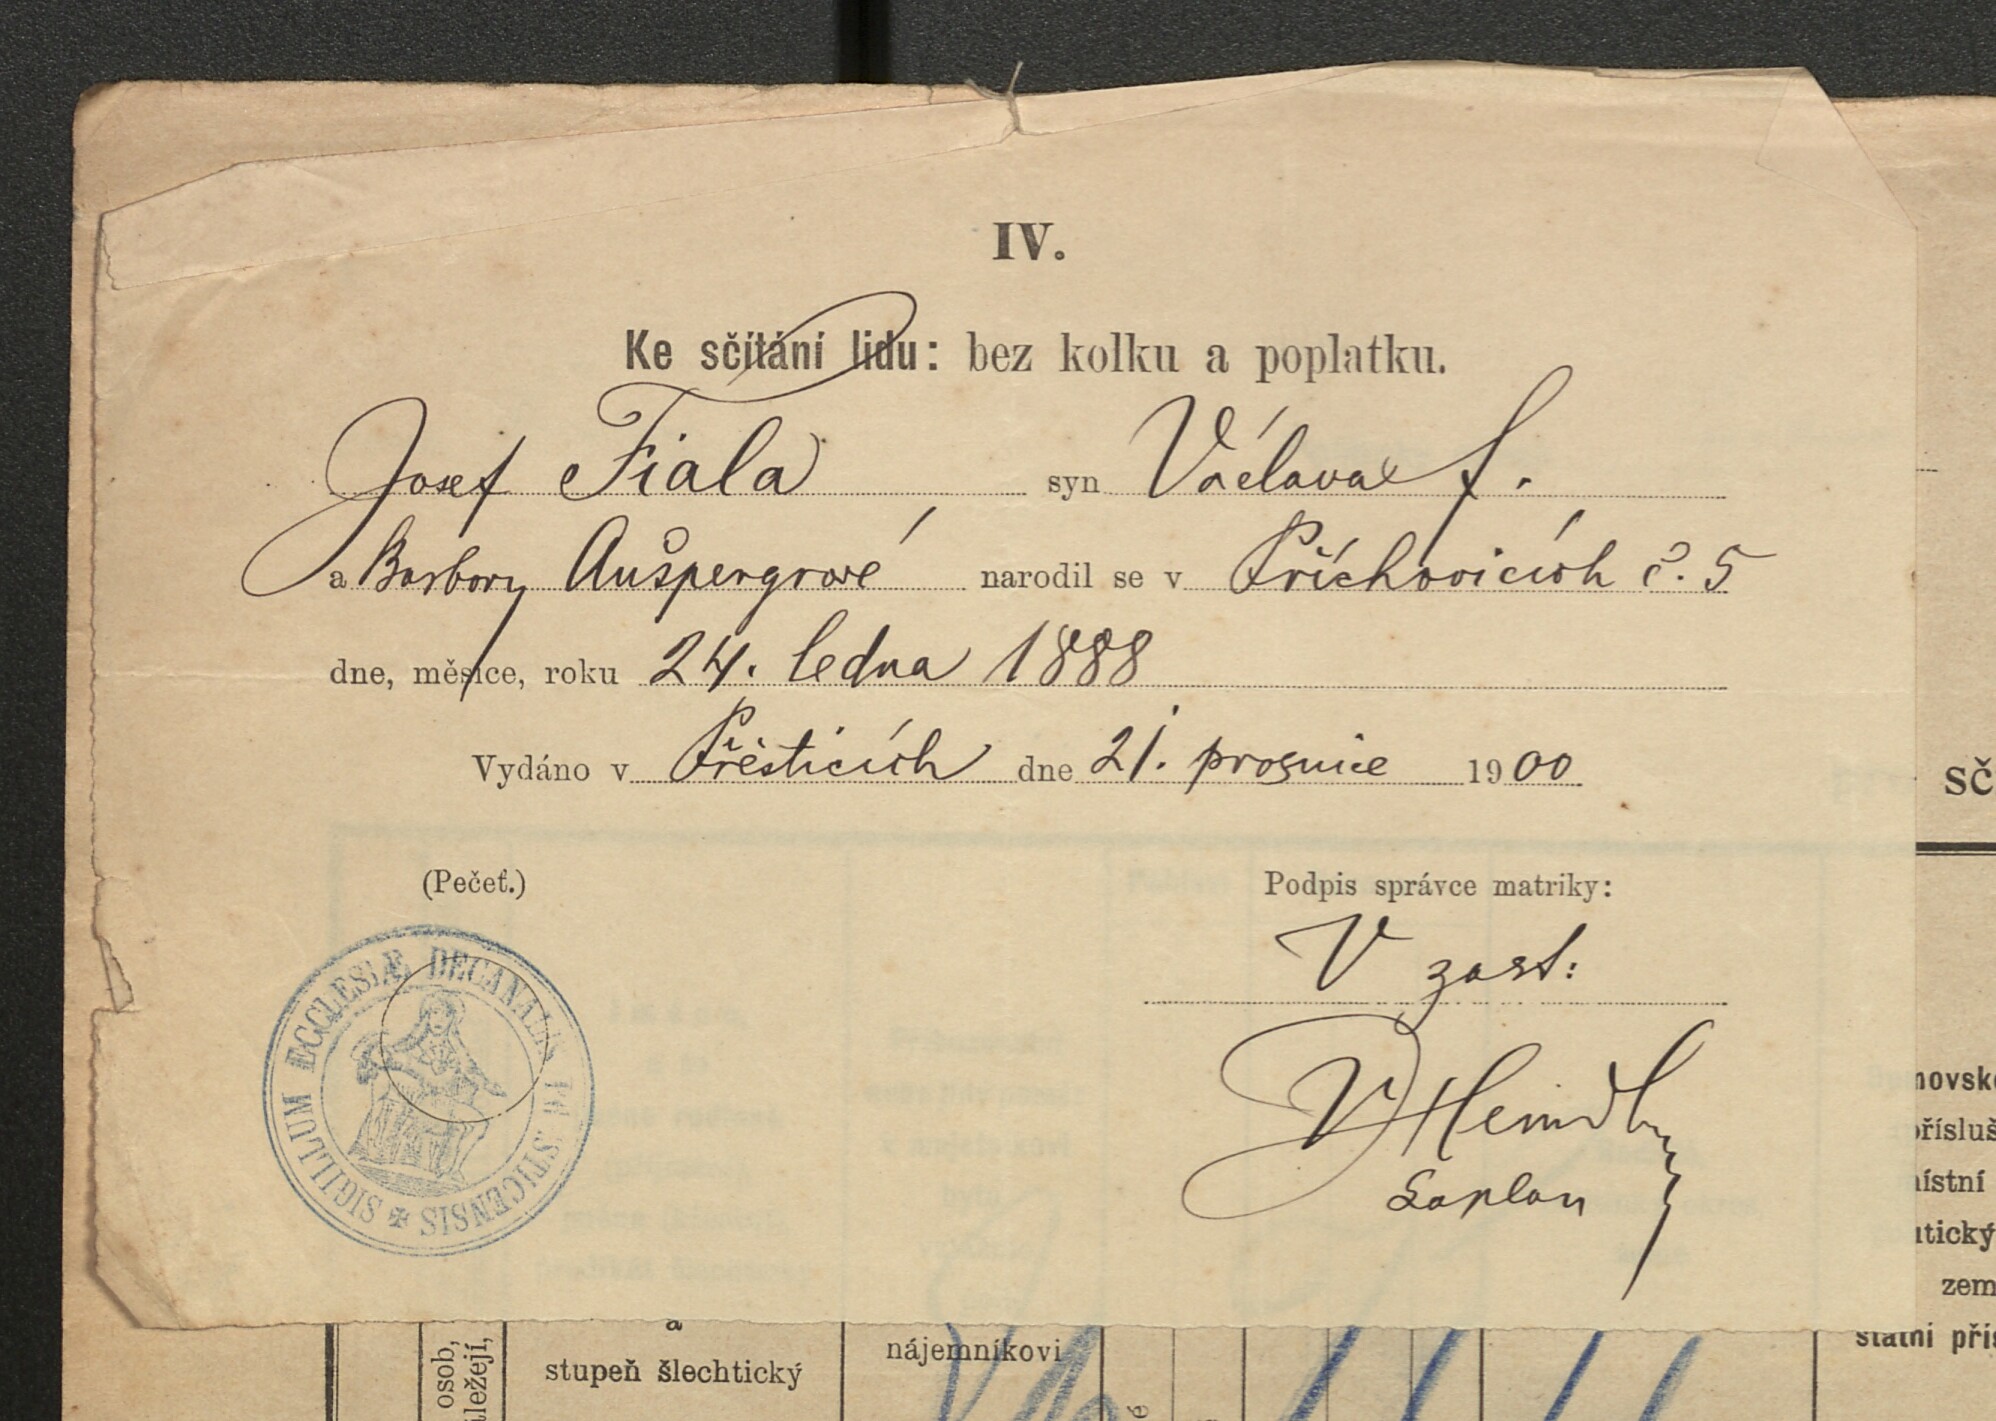 IV.
Ke sčítání lidu: bez kolku a poplatku.
Josef Fiala syn Václava f.
a Barbory Aušpergrové narodil se v Příchovicích č. 5
dne, měsíce, roku 24. ledna 1888
Vydáno v Přešticích dne 21. prosince 1900
(Pečeť.)
Podpis správce matriky:
V zast:
kaplan
SIGILLUM ECCLESIÆ DECANALIS STICENSIS
sč
novske
přísluš
místní
itický
zem
státní přís
osob,
áležejí,
a
stupeň šlechtický
nájemníkovi